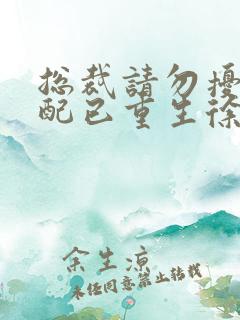 总裁請勿擾
配已重生徐
余生凉
未经同意禁止转载